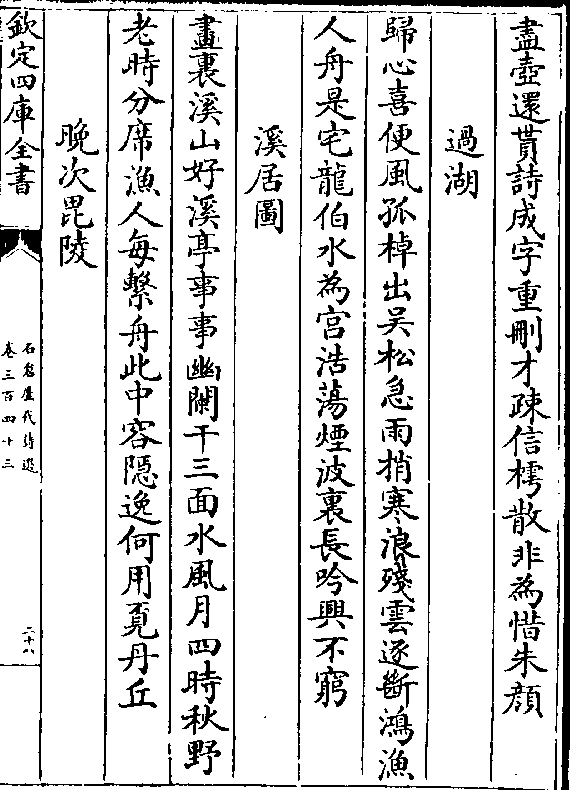 盡壺還貰詩成字重刪才疎信樗散非為惜朱顔
過湖
歸心喜便風孤棹出吴松急雨捎寒浪殘雲逐斷鴻漁
人舟是宅龍伯水為宫浩蕩煙波裏長吟興不窮
溪居圖
畫裏溪山好溪亭事事幽闌干三面水風月四時秋野
老時分席漁人每繫舟此中容隠逸何用覓丹丘
晚次毘陵
欽定四庫全書
石倉歷代詩選
卷三百四十三
二十八